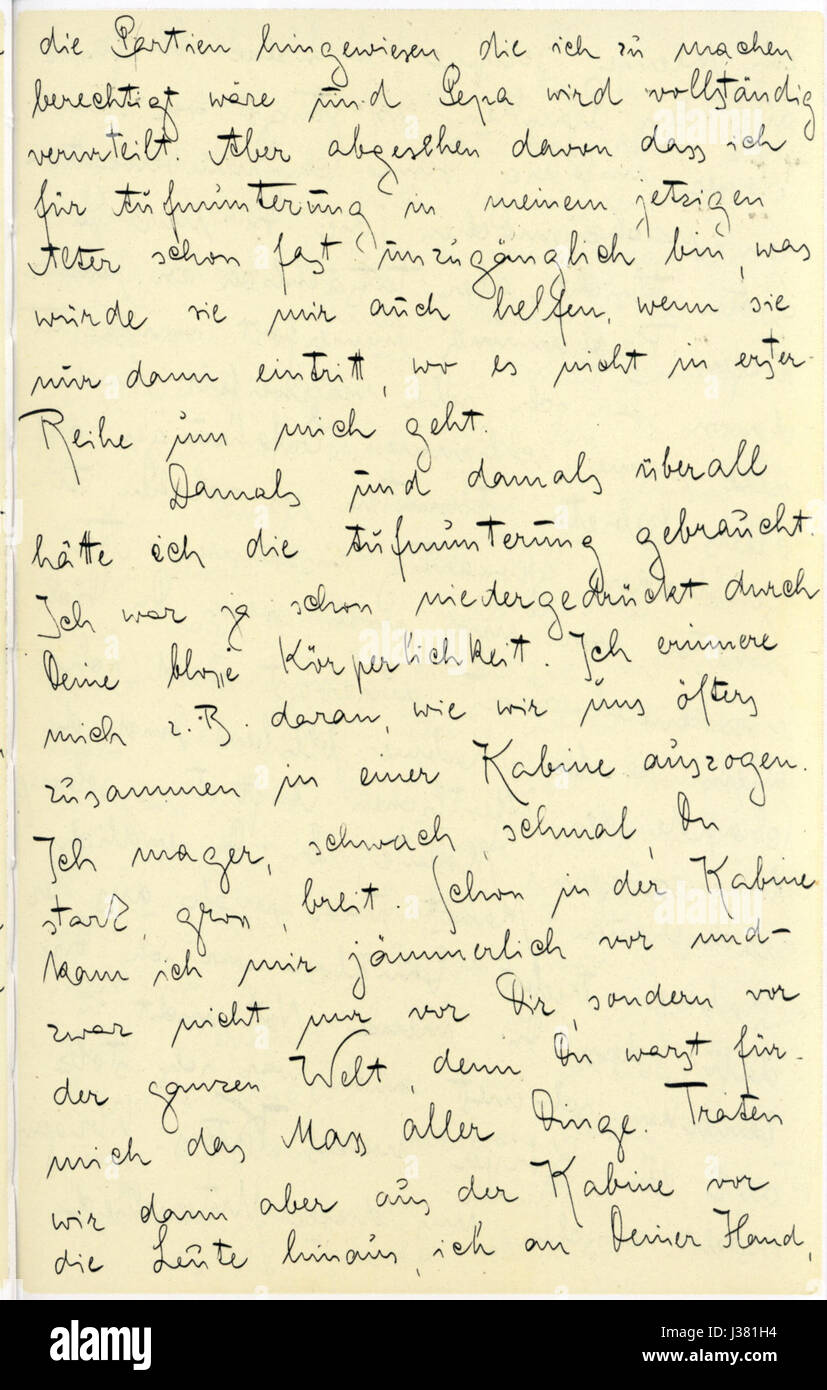 die Partien hingewiesen, die ich zu machen
berechtigt wäre und Pepa wird vollständig
verurteilt. Aber abgesehen davon dass ich
für Aufmunterung in meinem jetzigen
Alter schon fast unzugänglich bin, was
würde sie mir auch helfen, wenn sie
nur dann eintritt, wo es nicht in erster
Reihe um mich geht.
Damals und damals überall
hätte ich die Aufmunterung gebraucht.
Ich war ja schon niedergedrückt durch
Deine blosse Körperlichkeit. Ich erinnere
mich z. B. daran, wie wir uns öfters
zusammen in einer Kabine auszogen.
Ich mager, schwach, schmal, Du
stark, gross, breit. Schon in der Kabine
kam ich mir jämmerlich vor und
zwar nicht nur vor Dir, sondern vor
der ganzen Welt, denn Du warst für
mich das Mass aller Dinge. Traten
wir dann aber aus der Kabine vor
die Leute hinaus, ich an Deiner Hand,
alamy
J381H4
www.alamy.com